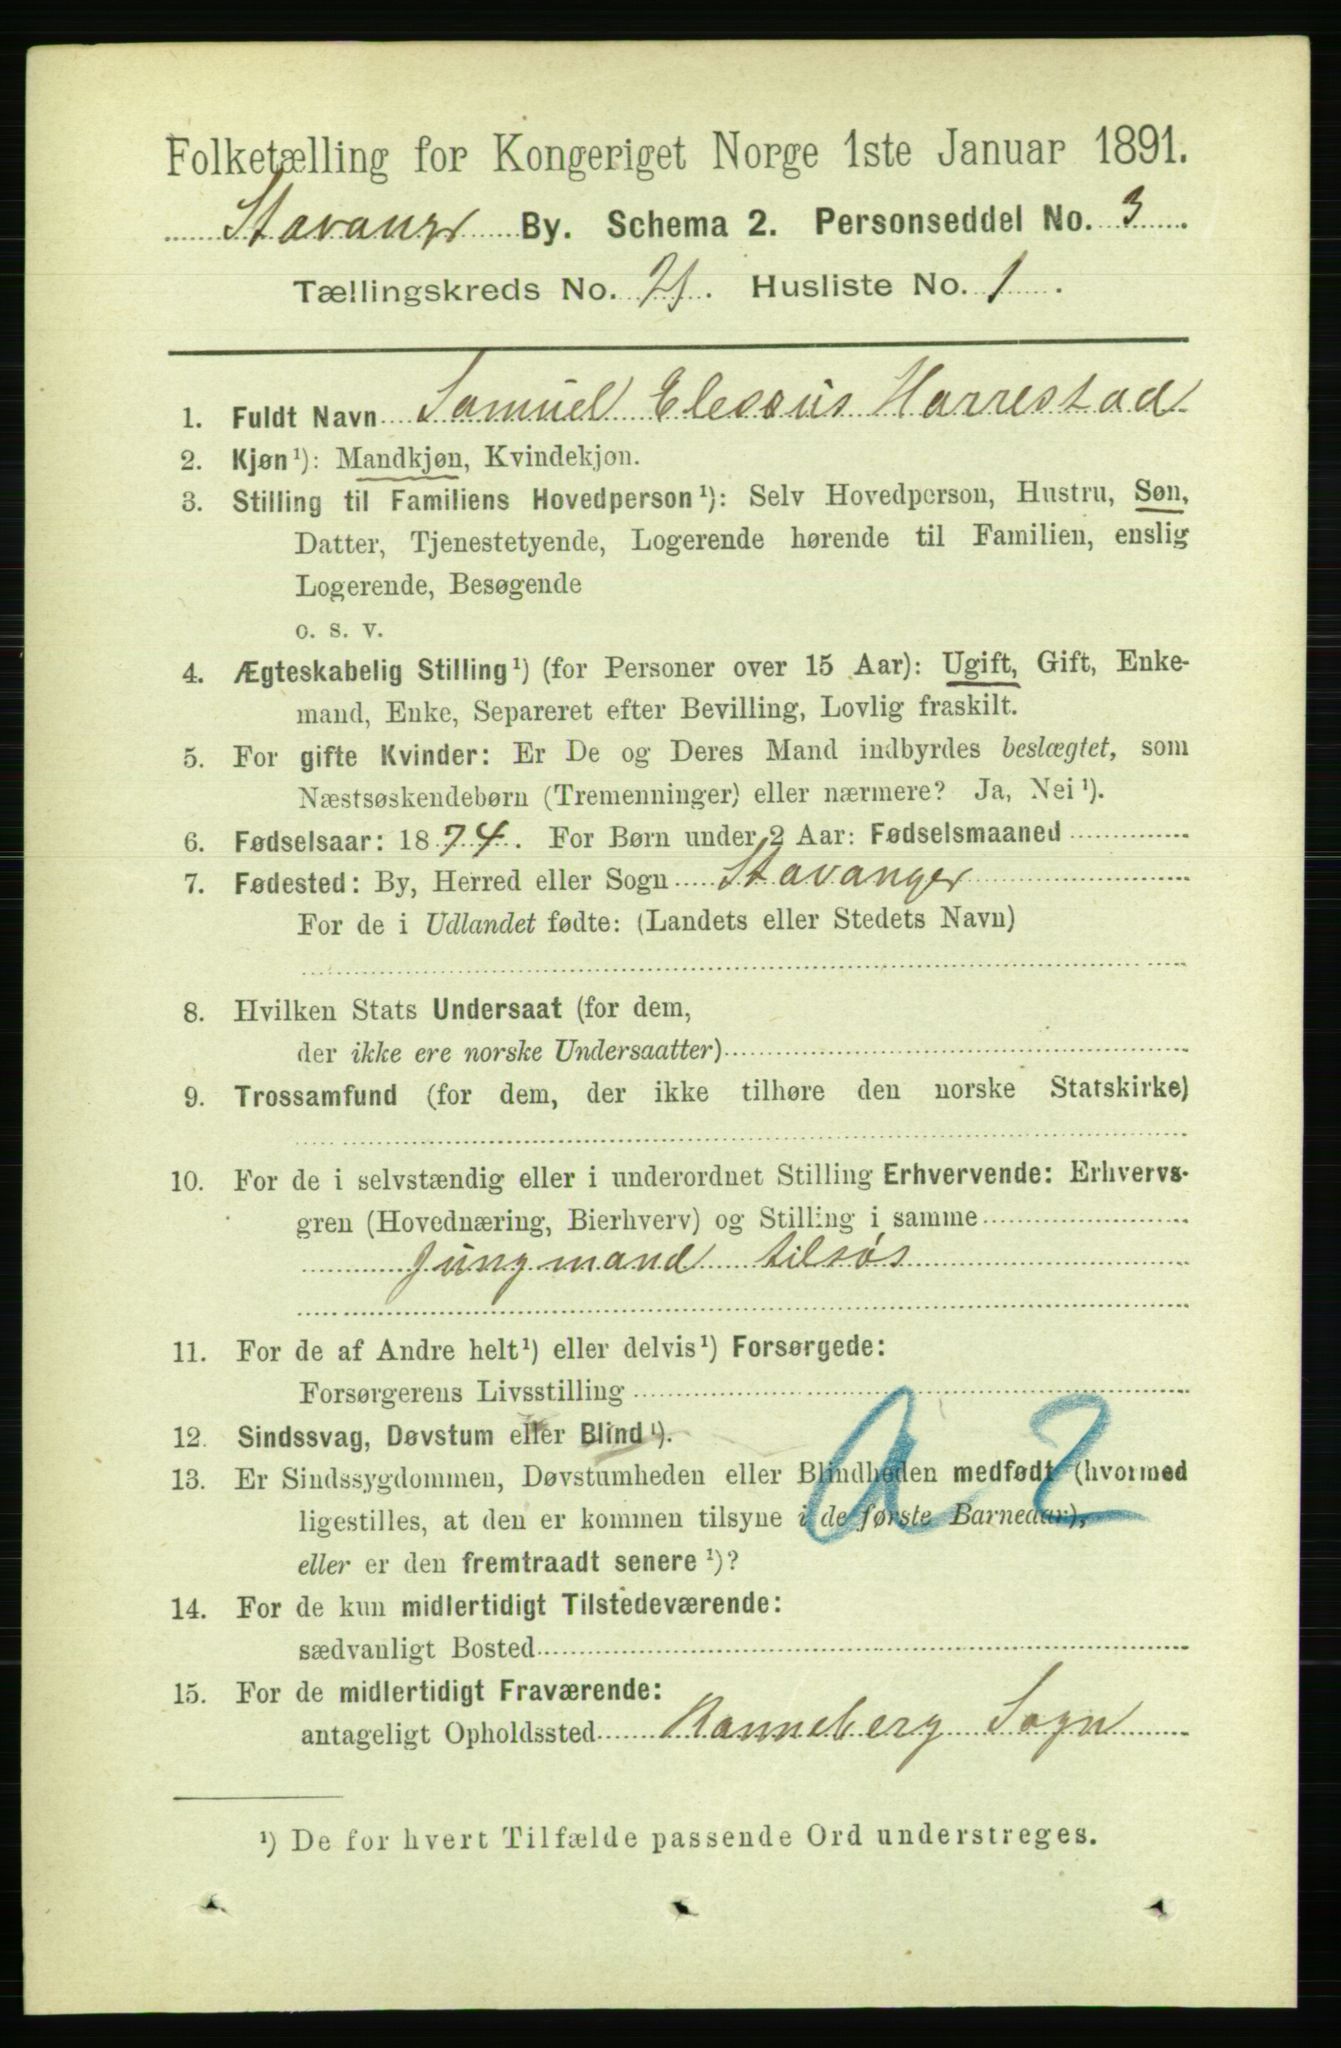 Folketælling for Kongeriget Norge 1ste Januar 1891.
Stavanger By. Schema 2. Personseddel No. 3.
Tællingskreds No. 21. Husliste No. 1.
1. Fuldt Navn Samuel Elesæus Harrestad
2. Kjøn ¹): Mandkjøn, Kvindekjøn.
3. Stilling til Familiens Hovedperson ¹): Selv Hovedperson, Hustru, Søn,
Datter, Tjenestetyende, Logerende hørende til Familien, enslig
Logerende, Besøgende
o. s. v.
4. Ægteskabelig Stilling ¹) (for Personer over 15 Aar): Ugift, Gift, Enke-
mand, Enke, Separeret efter Bevilling, Lovlig fraskilt.
5. For gifte Kvinder: Er De og Deres Mand indbyrdes beslægtet, som
Næstsøskendebørn (Tremenninger) eller nærmere? Ja, Nei ¹).
6. Fødselsaar: 1874. For Børn under 2 Aar: Fødselsmaaned
7. Fødested: By, Herred eller Sogn Stavanger
For de i Udlandet fødte: (Landets eller Stedets Navn)
8. Hvilken Stats Undersaat (for dem,
der ikke ere norske Undersaatter)
9. Trossamfund (for dem, der ikke tilhøre den norske Statskirke)
10. For de i selvstændig eller i underordnet Stilling Erhvervende: Erhvervs-
gren (Hovednæring, Bierhverv) og Stilling i samme
Jungmand tilsøs
11. For de af Andre helt ¹) eller delvis ¹) Forsørgede:
Forsørgerens Livsstilling
12. Sindssvag, Døvstum eller Blind ¹).
13. Er Sindssygdommen, Døvstumheden eller Blindheden medfødt (hvormed
ligestilles, at den er kommen tilsyne i de første Barneaar),
eller er den fremtraadt senere ¹)?
a 2
14. For de kun midlertidigt Tilstedeværende:
sædvanligt Bosted
15. For de midlertidigt Fraværende:
antageligt Opholdssted Ranneberg Sogn
¹) De for hvert Tilfælde passende Ord understreges.